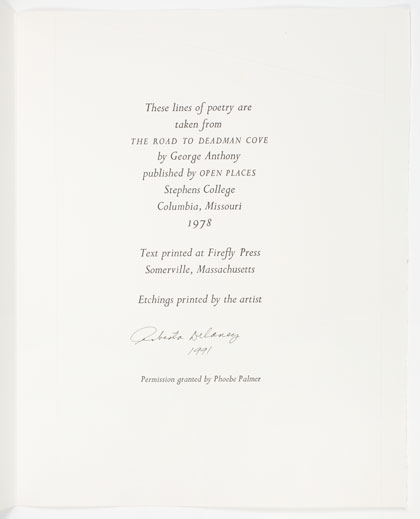 These lines of poetry are
taken from
THE ROAD TO DEADMAN COVE
by George Anthony
published by OPEN PLACES
Stephens College
Columbia, Missouri
1978
Text printed at Firefly Press
Somerville, Massachusetts
Etchings printed by the artist
Roberta Delaney
1991
Permission granted by Phoebe Palmer